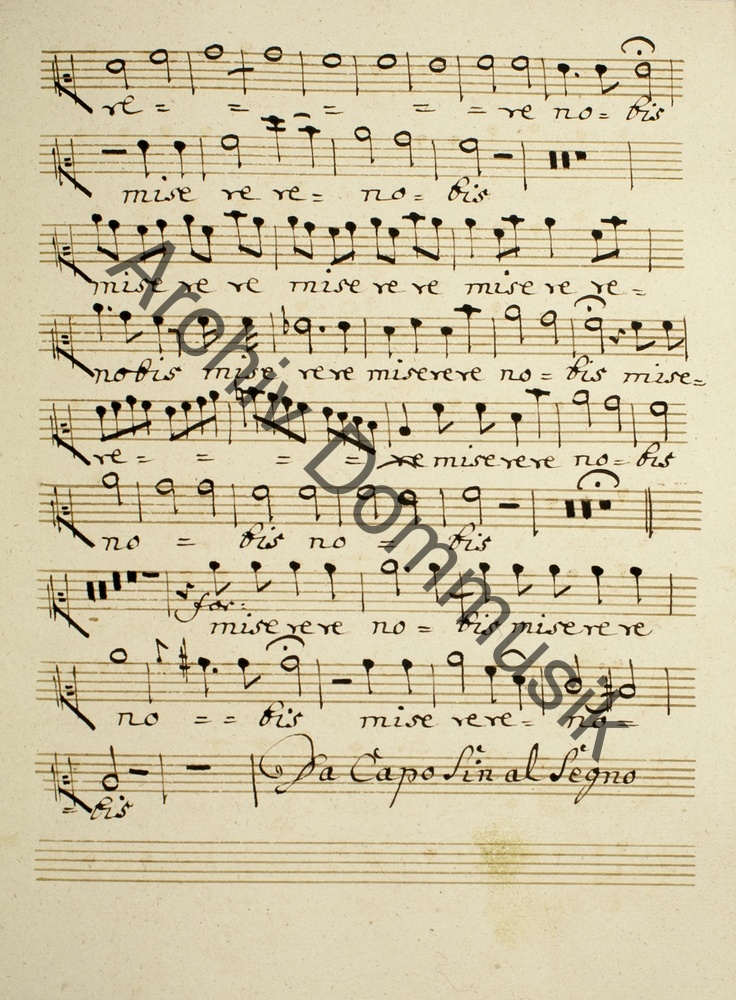 re = = = = = re no = bis
mise re re = no = bis
mise re re mise re re mise re re =
nobis mise rere miserere no = bis mise =
re = = = = re miserere no = bis
no = bis no = bis
for:
miserere no = bis miserere
no = = bis mise rere = no =
= bis
Da Capo Sin al Segno
Archiv Dommusik